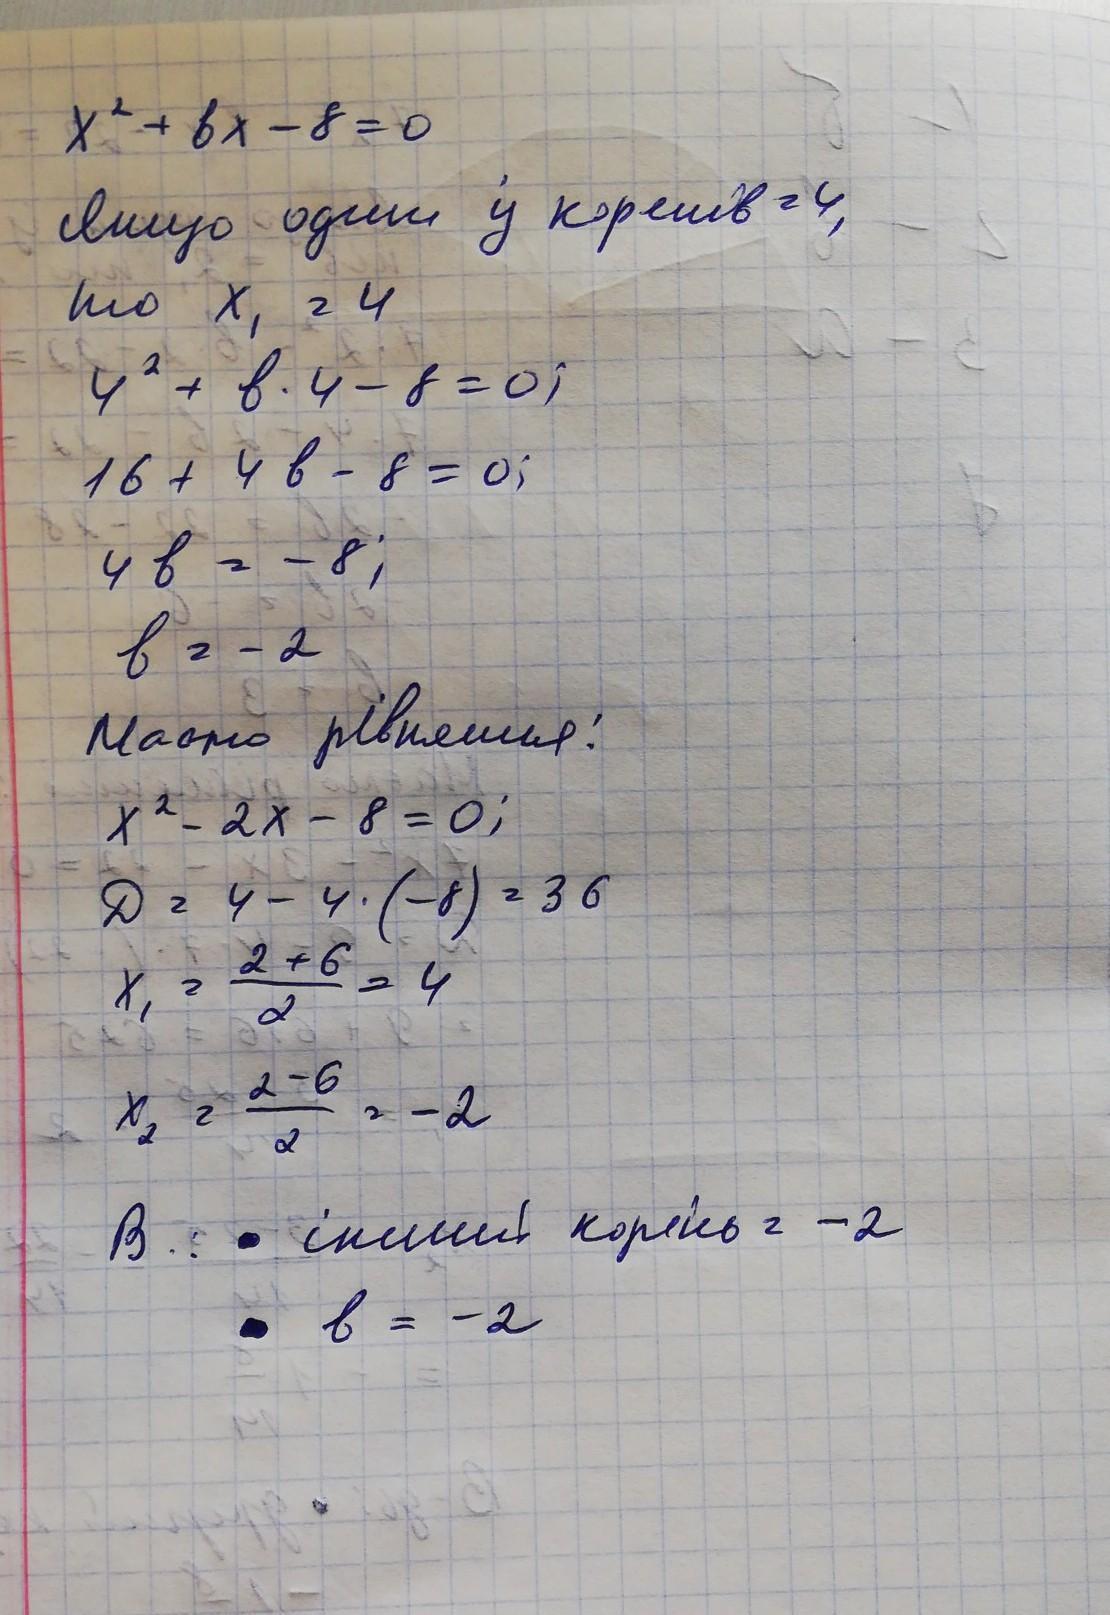 x² + bx - 8 = 0
Якщо один із коренів = 4,
то x₁ = 4
4² + b · 4 - 8 = 0;
16 + 4b - 8 = 0;
4b = -8;
b = -2
Маємо рівняння:
x² - 2x - 8 = 0;
D = 4 - 4 · (-8) = 36
x₁ = (2+6)/2 = 4
x₂ = (2-6)/2 = -2
В.: • інший корінь = -2
• b = -2